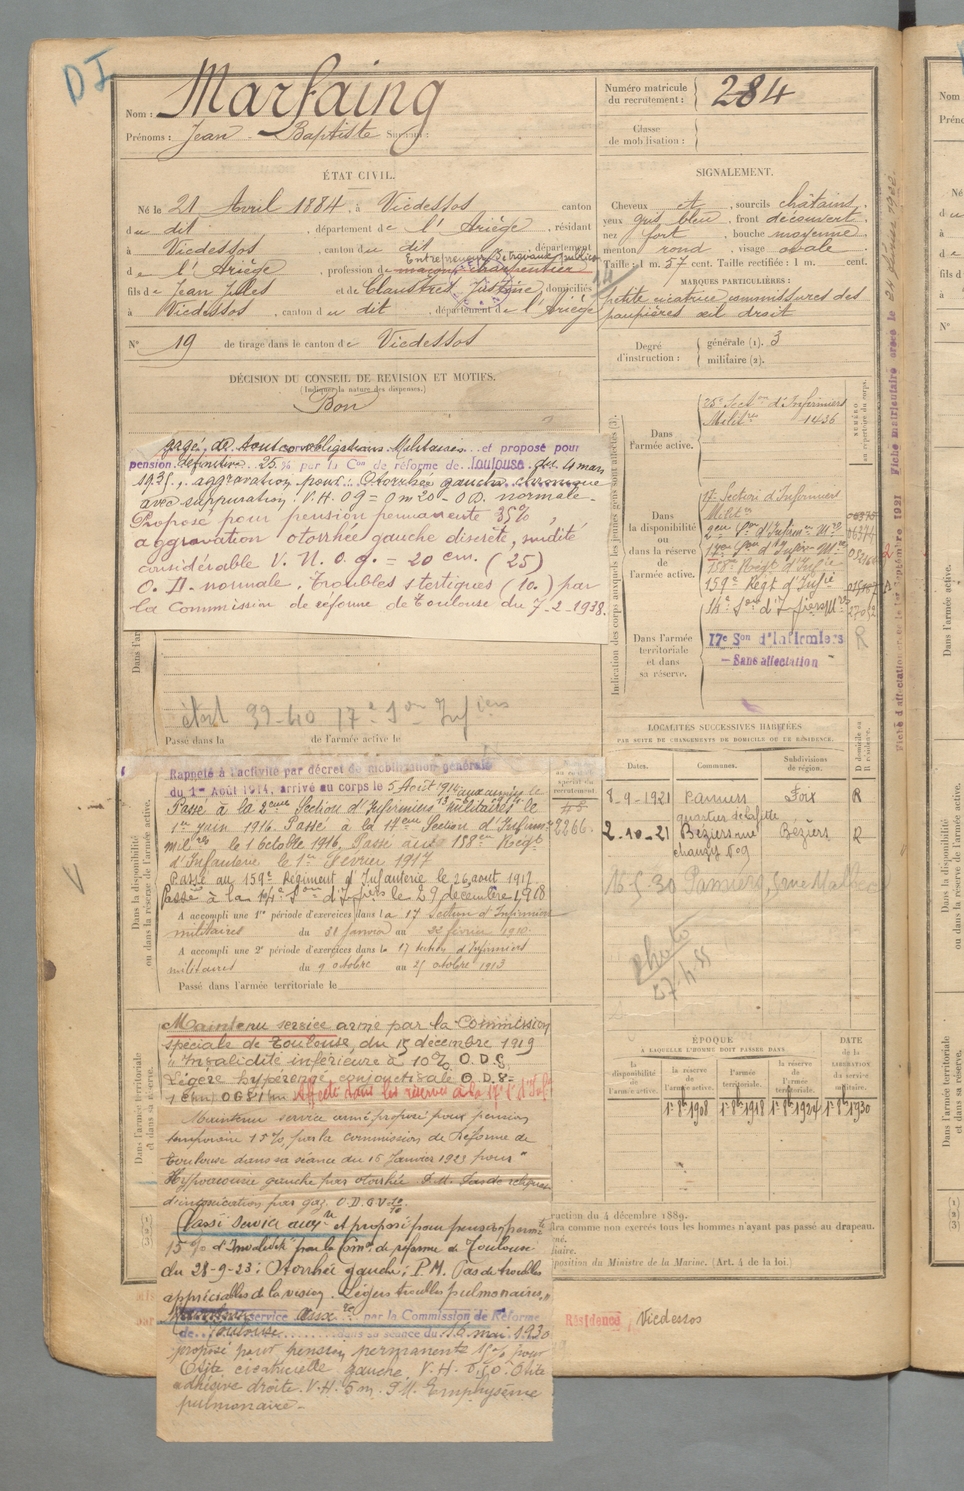 DI
Nom : Marfaing
Prénoms : Jean Baptiste Surnoms :
Numéro matricule du recrutement : 284
Classe de mobilisation :
ÉTAT CIVIL.
Né le 21 Avril 1884, à Vicdessos canton
du dit, département de l'Ariège, résidant
à Vicdessos, canton du dit, département
Entrepreneur de travaux publics
de l'Ariège, profession de maçon charpentier
fils de Jean Jules et de Claustres Justine, domiciliés
à Vicdessos, canton du dit, département de l'Ariège
N° 19 de tirage dans le canton de Vicdessos
SIGNALEMENT.
Cheveux et, sourcils châtains,
yeux gris bleu, front découvert,
nez fort, bouche moyenne,
menton rond, visage ovale.
Taille : 1 m. 57 cent. Taille rectifiée : 1 m. cent.
MARQUES PARTICULIÈRES :
petite cicatrice commissures des
paupières œil droit
Degré d'instruction : générale (1). 3
militaire (2).
DÉCISION DU CONSEIL DE REVISION ET MOTIFS.
(Indiquer la nature des dispenses.)
Bon
gagé de toutes obligations Militaires et proposé pour
pension définitive 25 % par la Con de réforme de Toulouse du 4 mars
1935, aggravation pour Otorrhée gauche chronique
avec suppuration. V.H. OG = 0m20 - OD. normale.
Proposé pour pension permanente 35%,
aggravation otorrhée gauche discrète, surdité
considérable V. H. O. g. = 20 cm. (25)
O. D. normale. Troubles stertiques (10) par
la Commission de réforme de Toulouse du 7-2-1938.
Indication des corps auxquels les jeunes gens sont affectés (3).
NUMÉRO au répertoire du corps.
Dans l'armée active.
25e Section d'Infirmiers
Milit.re 1436
Dans la disponibilité ou dans la réserve de l'armée active.
17e Section d'Infirmiers
Milit.re
2eme Son d'Infirm.rs M.res
17eme Son d'Infir. M.res
158e Régt d'Infie
159e Régt d'Infie
14e Son d'Ifiers Mres
Dans l'armée territoriale et dans sa réserve.
17e Son d'Infirmiers
- Sans affectation -
R
Fiche d'affectation Fiche matriculaire
39-40 17e Son Infiers
Passé dans la de l'armée active le
LOCALITÉS SUCCESSIVES HABITÉES
PAR SUITE DE CHANGEMENTS DE DOMICILE OU DE RÉSIDENCE.
Dates. Communes. Subdivisions de région. D domicile ou R résidence.
8-9-1921 Pamiers Foix R
quartier de Lafitte
2-10-21 Béziers rue Béziers R
changée No 9
16-5-30 Pamiers
Photo
Dans la disponibilité ou dans la réserve de l'armée active.
Rappelé à l'activité par décret de mobilisation générale
du 1er Août 1914, arrivé au corps le 5 Août 1914 aux armées le
Passé à la 2eme Section d'Infirmiers 13 militaires le
1er juin 1916. Passé à la 17eme Section d'Infirm
milres le 1 Octobre 1916. Passé au 158eme Régt
d'Infanterie le 1er Février 1917
Passé au 159e Régiment d'Infanterie le 26 août 1917
Passé à la 14e Son d'Ifiers le 29 décembre 1918
2266
A accompli une 1re période d'exercices dans la 17 Section d'Infirmiers
militaires du 31 janvier au 22 février 1910.
A accompli une 2e période d'exercices dans la 17 section d'Infirmiers
militaires du 9 octobre au 25 octobre 1913
Passé dans l'armée territoriale le
Dans l'armée territoriale et dans sa réserve.
Maintenu service armé par la Commission
spéciale de Toulouse, du 15 décembre 1919
"Invalidité inférieure à 10% O.D.G.
Légère hypérémie conjonctivale O.D.G=
Affecté dans les réserves à la 17e
Maintenu service armé proposé pour pension
temporaire 15% par la commission de Réforme de
Toulouse dans sa séance du 16 Janvier 1923 pour "
Hypoacousie gauche par otorrhée P.M. Pas de reliquat
d'intoxication par gaz.
Classé service auxre et proposé pour pension perm.te
15% d'Invalidité par la Comon de réforme de Toulouse
du 28-9-23 : Otorrhée gauche ; P.M. Pas de troubles
appréciables de la vision. Légers troubles pulmonaires."
Maintenu service auxre par la Commission de Réforme
de Toulouse dans sa séance du 16 mai 1930
proposé pour pension permanente 15% pour
Otite cicatricielle gauche V.H. Otite
adhésive droite. V.H. 5m. P.M. Emphysème
pulmonaire.-
ÉPOQUE À LAQUELLE L'HOMME DOIT PASSER DANS
la disponibilité de l'armée active. la réserve de l'armée active. l'armée territoriale. la réserve de l'armée territoriale. DATE de la LIBÉRATION du service militaire.
1r 8bre 1908 1r 8bre 1918 1r 8bre 1924 1r 8bre 1930
ruction du 4 décembre 1889.
ra comme non exercés tous les hommes n'ayant pas passé au drapeau.
position du Ministre de la Marine. (Art. 4 de la loi.)
Résidence Vicdessos